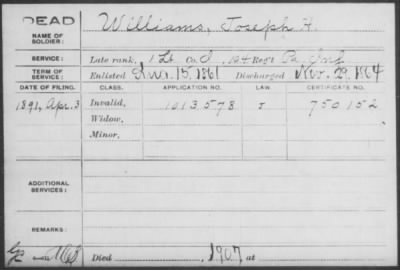 DEAD
Williams, Joseph H.
NAME OF SOLDIER:
SERVICE: Late rank, 1 Lt Co. I, 104 Reg't Pa. Inf
TERM OF SERVICE: Enlisted 15, 1861 Discharged Nov. 29, 1864
DATE OF FILING. CLASS. APPLICATION NO. LAW CERTIFICATE NO.
1891, Apr. 3 Invalid, 1013578 J 750152
Widow,
Minor,
ADDITIONAL SERVICES:
REMARKS:
Died 1907 at